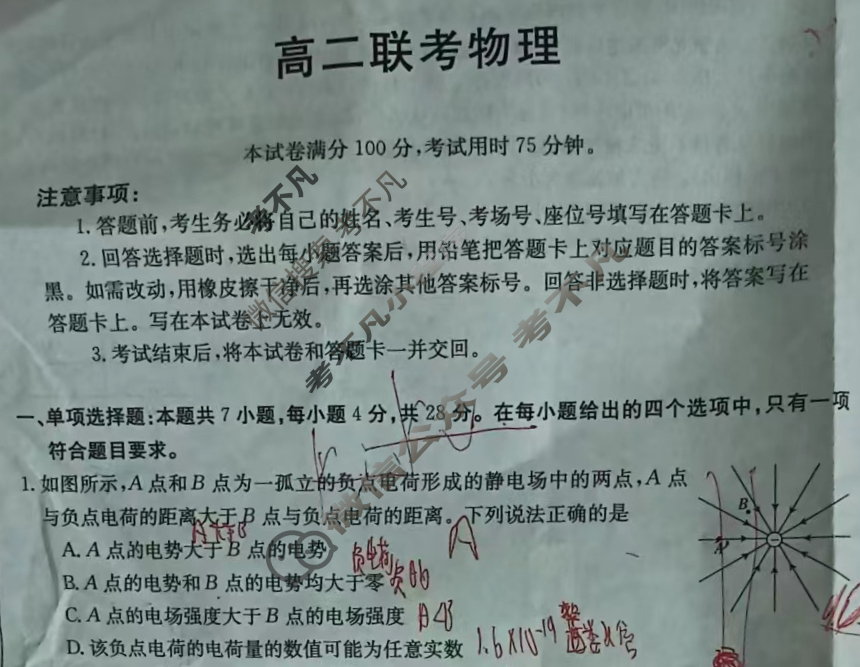 高二联考物理
本试卷满分 100 分,考试用时 75 分钟。
注意事项:
1. 答题前,考生务必将自己的姓名、考生号、考场号、座位号填写在答题卡上。
2. 回答选择题时,选出每小题答案后,用铅笔把答题卡上对应题目的答案标号涂
黑。如需改动,用橡皮擦干净后,再选涂其他答案标号。回答非选择题时,将答案写在
答题卡上。写在本试卷上无效。
3. 考试结束后,将本试卷和答题卡一并交回。
一、单项选择题:本题共 7 小题,每小题 4 分,共 28 分。在每小题给出的四个选项中,只有一项
符合题目要求。
1. 如图所示,A 点和 B 点为一孤立的负点电荷形成的静电场中的两点,A 点
与负点电荷的距离大于 B 点与负点电荷的距离。下列说法正确的是
A 大于 B
A
A. A 点的电势大于 B 点的电势
负电荷
B. A 点的电势和 B 点的电势均大于零
负的
C. A 点的电场强度大于 B 点的电场强度
A<B
D. 该负点电荷的电荷量的数值可能为任意实数
1.6×10-19
B
A
微信搜索考不凡
考不凡
微信公众号 考不凡